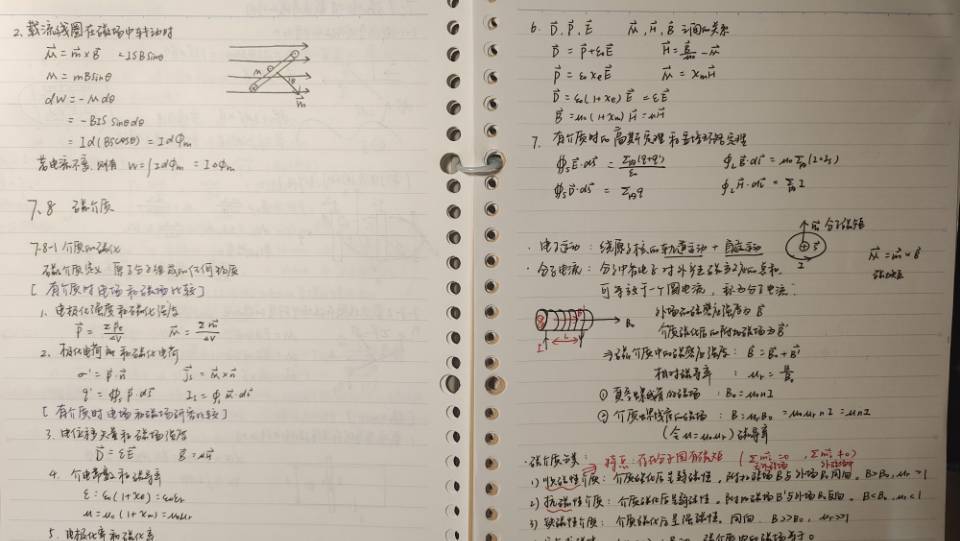 2. 载流线圈在磁场中转动时
M⃗ = m⃗ × B⃗ = ISBsinθ
M = mBsinθ
dW = -Mdθ
= -BIS sinθdθ
= Id(BScosθ) = IdΦm
若电流不变，则有 W = ∫IdΦm = IΔΦm
M
m⃗
7.8 磁介质
7.8-1 介质的磁化
[有介质时电场和磁场比较]
1. 电极化强度和磁化强度
P⃗ = ΣPe/ΔV M⃗ = Σm⃗/ΔV
2. 极化电荷 和磁化电荷
σ' = P⃗·n⃗ js = M⃗×n⃗
[有介质时电场和磁场 比较]
3. 电位移矢量和磁场强度
D⃗ = εE⃗ B⃗ = μH⃗
4. 介电常数和磁导率
ε = ε₀(1+Xe) = ε₀εr
μ = μ₀(1+Xm) = μ₀μr
5. 电极化率和磁化率
6. D⃗, P⃗, E⃗ M⃗, H⃗, B⃗ 之间的关系
D⃗ = P⃗+ε₀E⃗ H⃗ = B⃗/μ₀ - M⃗
P⃗ = ε₀XeE⃗ M⃗ = XmH⃗
D⃗ = ε₀(1+Xe)E⃗ = εE⃗
B⃗ = μ₀(1+Xm)H⃗ = μH⃗
7. 有介质时的高斯定理和安培环路定理
∮s E⃗·dS⃗ = Σ内(q+q')/ε₀ ∮L B⃗·dl⃗ = μ₀Σ内(I+Is)
∮s D⃗·dS⃗ = Σ内q ∮L H⃗·dl⃗ = Σ内I
m⃗ 分子磁矩
I
·电子运动：绕原子核的轨道运动 + 自旋运动
M⃗ = m⃗×B⃗
·分子电流：分子中各电子对外产生磁效应的总和
可等效于一个圆电流，称为分子电流
I
L
B₀
外场的磁感应强度为
介质磁化后的附加磁场为B⃗'
⇒磁介质中的磁感应强度：B⃗ = B⃗₀+B⃗'
相对磁导率：μr = B/B₀
① 真空螺线管的磁场：B₀ = μ₀nI
② 介质螺线管的磁场：B = μrB₀ = μ₀μrnI = μnI
(令μ=μ₀μr) 磁导率
·磁介质分类：
特点：存在分子固有磁矩 (Σm⃗ = 0, Σm⃗ ≠ 0)
1) 顺磁性介质：介质磁化后呈弱磁性，附加磁场B'与外场B₀同向，B>B₀, μr>1
2) 抗磁性介质：介质磁化后呈弱磁性，附加磁场B'与外场B₀反向，B<B₀, μr<1
3) 铁磁性介质：介质磁化后呈强磁性，同向 B>>B₀, μr>>1